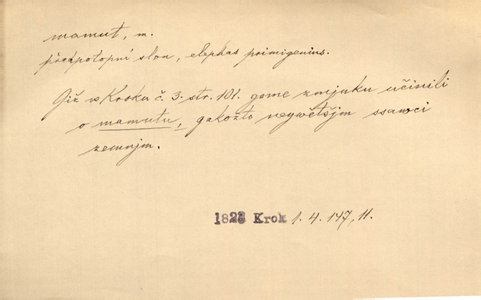 mamut, m.
předpotopní slon, elephas primigenius.
Giž w Kroku č. 3. str. 101. gsme zmjnku učinili
o mamutu, gakožto neywětšjm ssawci
zemnjm.
1823 Krok 1. 4. 147, 11.